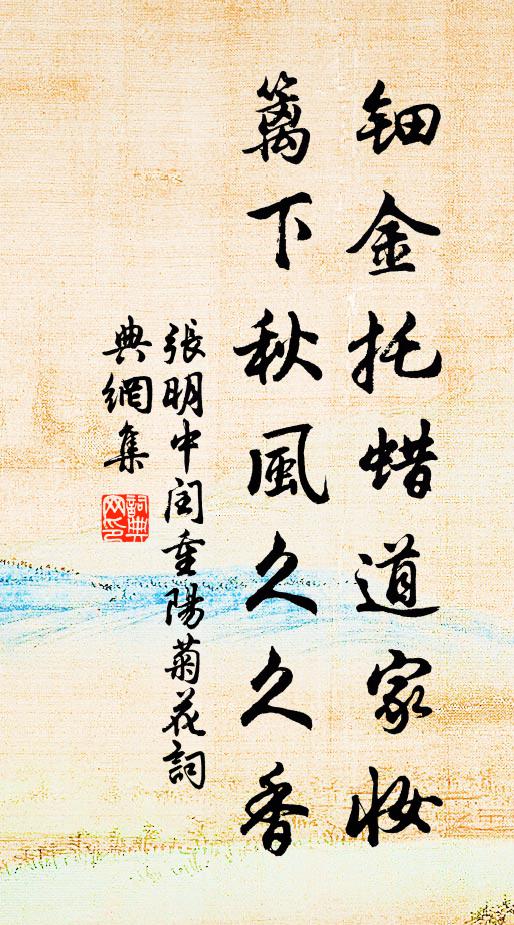 钿金托蜡道家妆
篱下秋風久久香
張明中闰重陽菊花詞
典網集
詞典網印